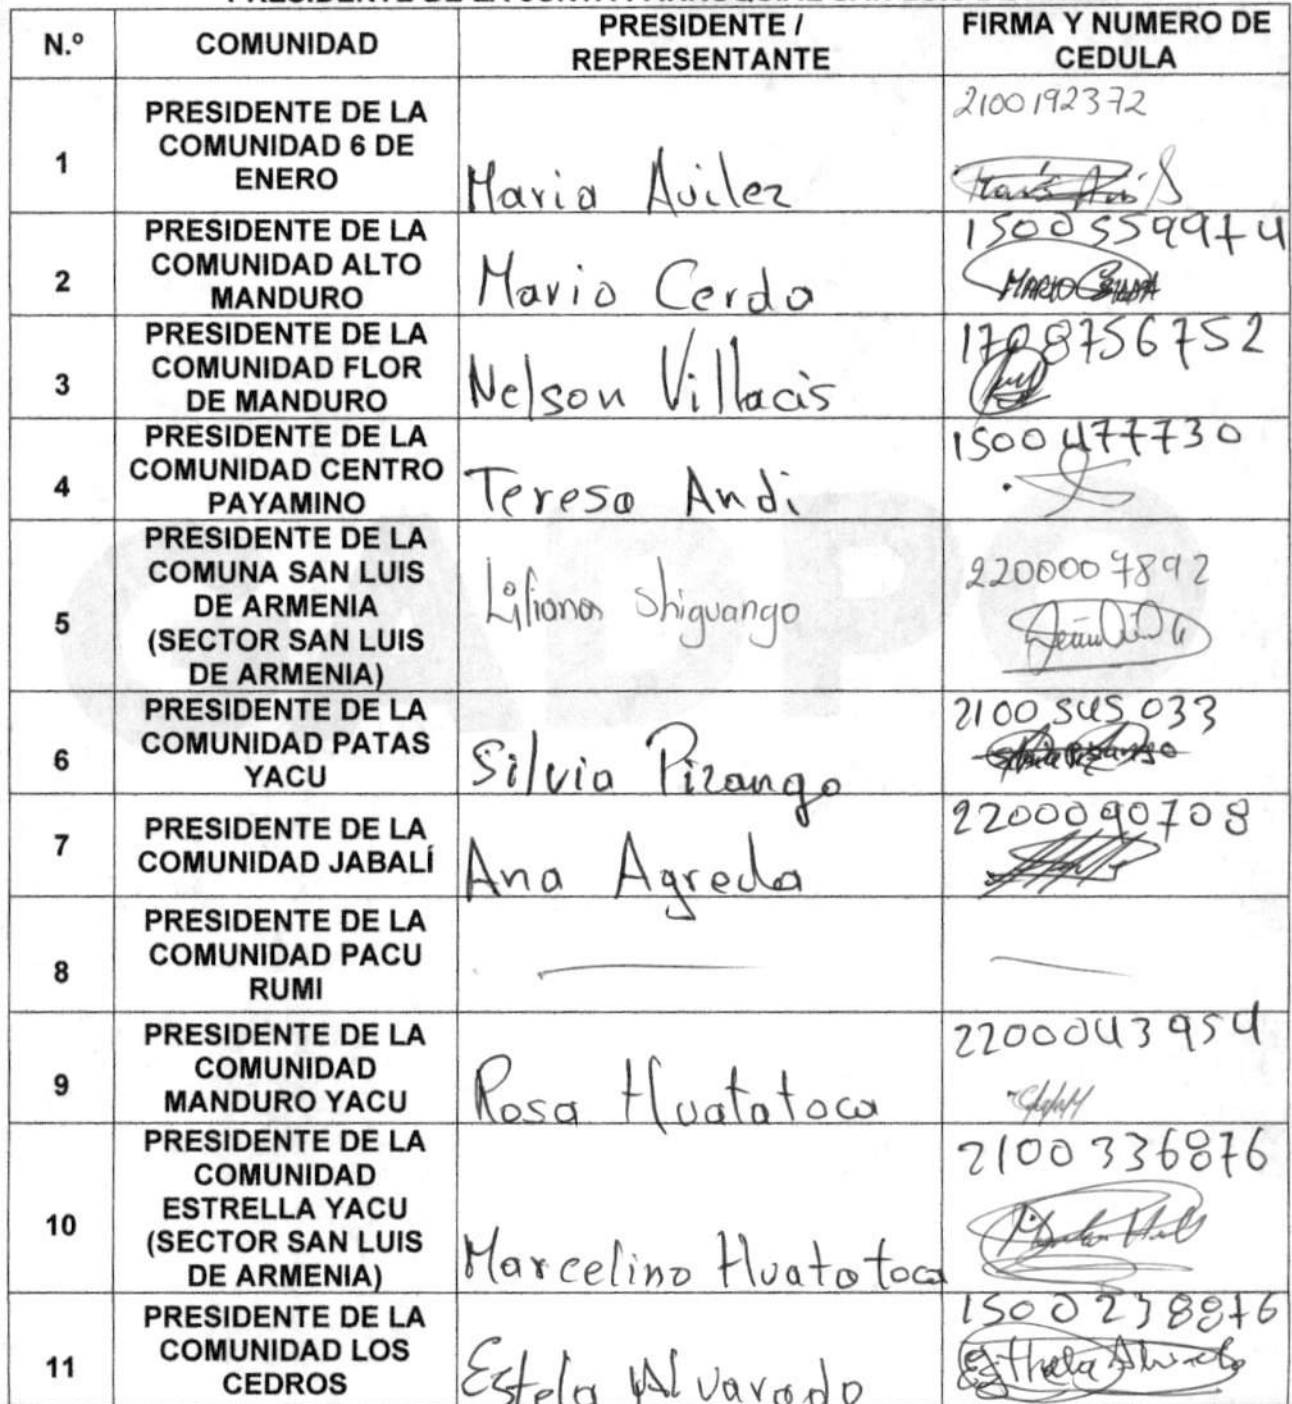 N.º COMUNIDAD PRESIDENTE / REPRESENTANTE FIRMA Y NUMERO DE CEDULA
1
PRESIDENTE DE LA
COMUNIDAD 6 DE
ENERO
Maria Avilez
2100192372
2
PRESIDENTE DE LA
COMUNIDAD ALTO
MANDURO
Mario Cerda
1500559974
MARIO CERDA
3
PRESIDENTE DE LA
COMUNIDAD FLOR
DE MANDURO
Nelson Villacis
1708756752
4
PRESIDENTE DE LA
COMUNIDAD CENTRO
PAYAMINO
Teresa Andi
1500477730
5
PRESIDENTE DE LA
COMUNA SAN LUIS
DE ARMENIA
(SECTOR SAN LUIS
DE ARMENIA)
Liliana Shiguango
2200007892
6
PRESIDENTE DE LA
COMUNIDAD PATAS
YACU
Silvia Pizango
2100545033
7
PRESIDENTE DE LA
COMUNIDAD JABALÍ
Ana Agreda
2200090708
8
PRESIDENTE DE LA
COMUNIDAD PACU
RUMI
9
PRESIDENTE DE LA
COMUNIDAD
MANDURO YACU
Rosa Huatatoca
2200043954
10
PRESIDENTE DE LA
COMUNIDAD
ESTRELLA YACU
(SECTOR SAN LUIS
DE ARMENIA)
Marcelino Huatatoca
2100336876
11
PRESIDENTE DE LA
COMUNIDAD LOS
CEDROS
Estela Alvarado
1500238876
GADPO